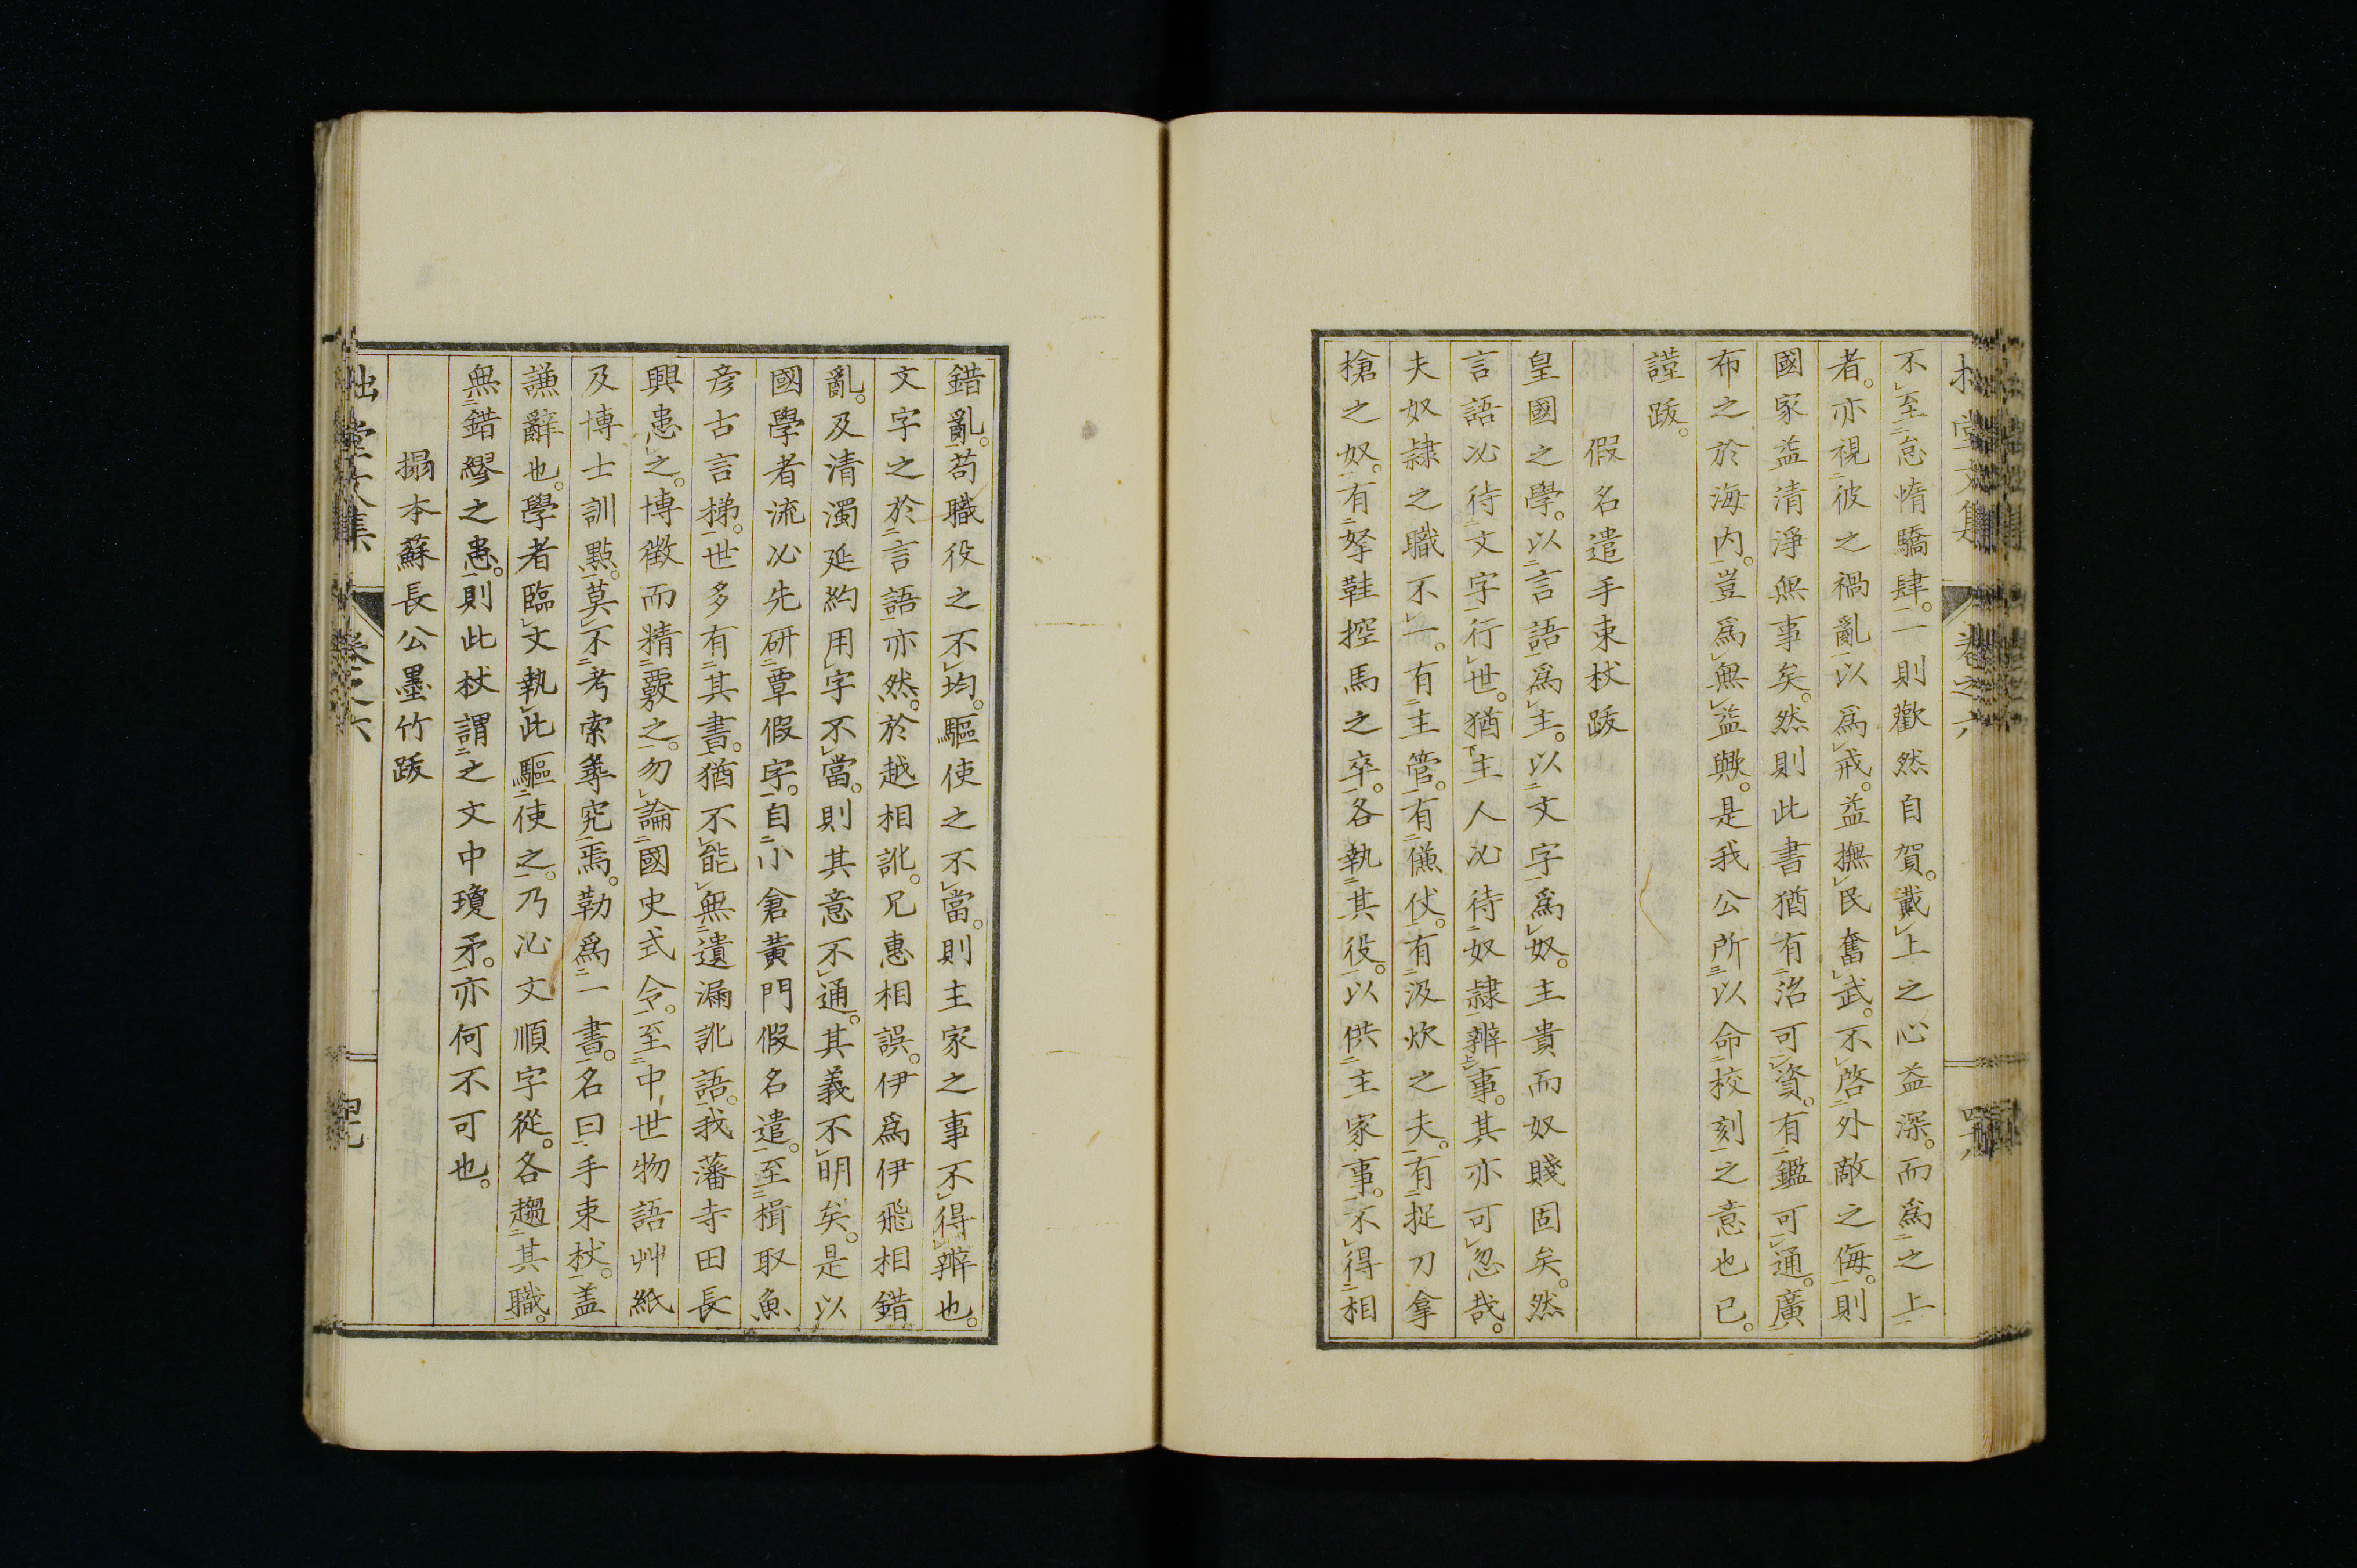 不至怠惰驕肆。則歡然自賀。戴上之心益深。而爲之上
者。亦視彼之禍亂以爲戒。益撫民奮武。不啓外敵之侮。則
國家益清淨無事矣。然則此書猶有治可資。有鑑可通。廣
布之於海内。豈爲無益歟。是我公所以命校刻之意也已。
謹跋。
假名遣手束杖跋
皇國之學。以言語爲主。以文字爲奴。主貴而奴賤固矣。然
言語必待文字行世。猶主人必待奴隷辨事。其亦可忽哉。
夫奴隷之職不一。有主管。有傔仗。有汲炊之夫。有捉刀拿
槍之奴。有拏鞋控馬之卒。各執其役。以供主家事。不得相
錯亂。苟職役之不均。驅使之不當。則主家之事不得辨也。
文字之於言語亦然。於越相訛。兄惠相誤。伊爲伊飛相錯
亂。及清濁延約用字不當。則其意不通。其義不明矣。是以
國學者流必先研覃假字。自小倉黃門假名遣。至楫取魚
彦古言梯。世多有其書。猶不能無遺漏訛語。我藩寺田長
興患之。博徴而精覈之。勿論國史式令。至中世物語艸紙
及博士訓點。莫不考索尋究焉。勒爲一書。名曰手束杖。盖
謙辭也。學者臨文執此驅使之。乃必文順字從。各趨其職。
無錯繆之患。則此杖謂之文中瓊矛。亦何不可也。
搨本蘇長公墨竹跋
拙堂文集 卷之六